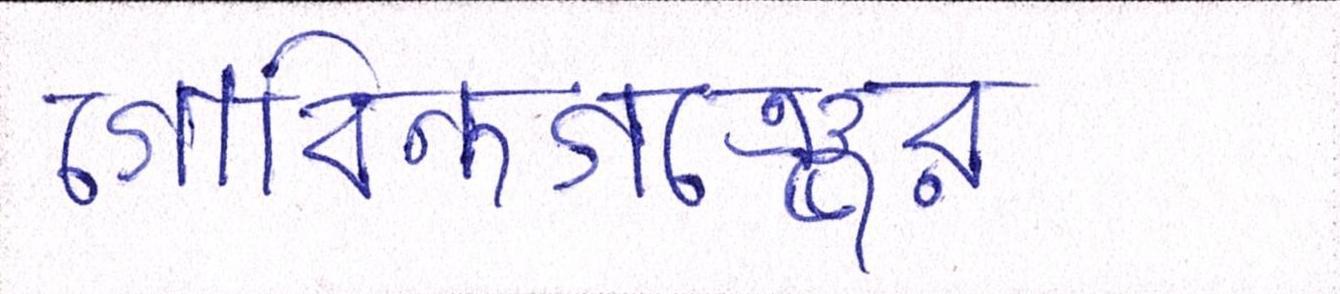 গোবিন্দগঞ্জের